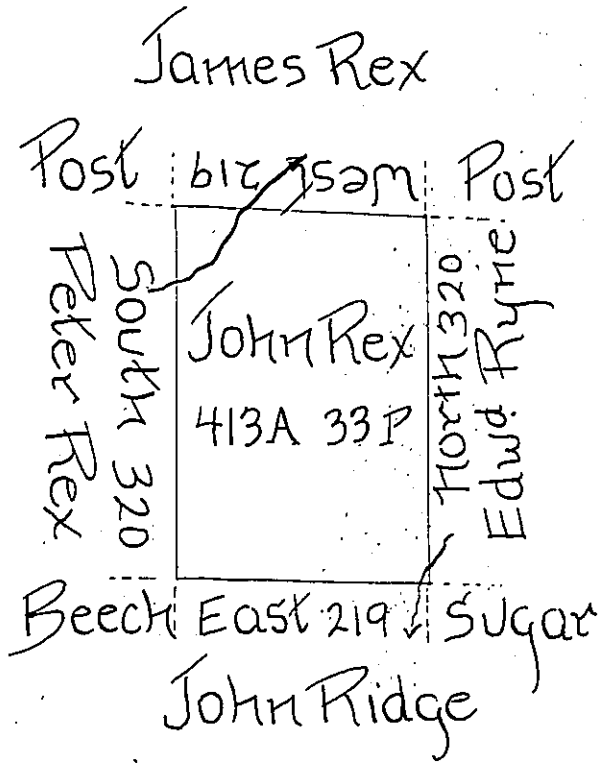 James Rex
Post West 219 Post
Peter Rex
South 320
John Rex
413A 33P
North 320
Edwd. Ryne
Beech East 219 Sugar
John Ridge